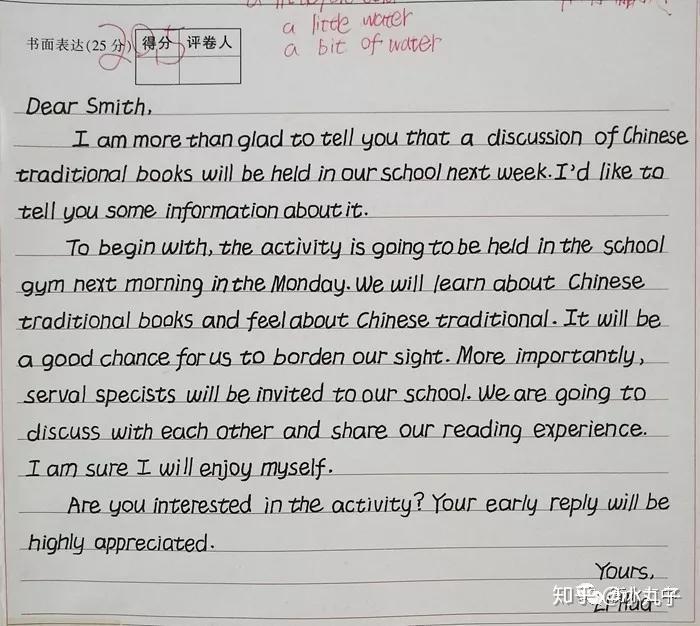 a little water
a bit of water
书面表达(25分) 得分 评卷人
Dear Smith,
I am more than glad to tell you that a discussion of Chinese
traditional books will be held in our school next week. I'd like to
tell you some information about it.
To begin with, the activity is going to be held in the school
gym next morning in the Monday. We will learn about Chinese
traditional books and feel about Chinese traditional. It will be
a good chance for us to borden our sight. More importantly,
serval specists will be invited to our school. We are going to
discuss with each other and share our reading experience.
I am sure I will enjoy myself.
Are you interested in the activity? Your early reply will be
highly appreciated.
Yours,
Li Hua
知乎